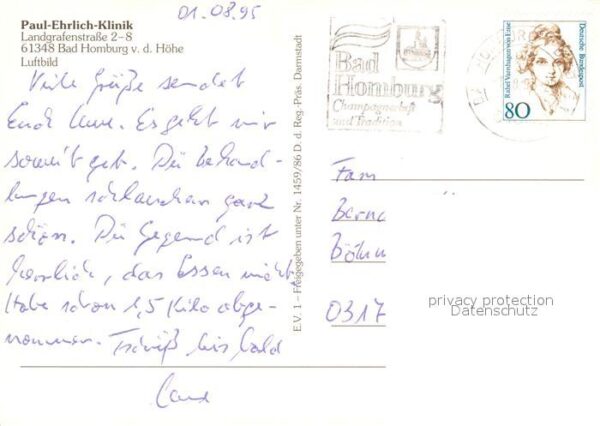 01.08.95
Paul-Ehrlich-Klinik
Landgrafenstraße 2-8
61348 Bad Homburg v. d. Höhe
Luftbild
Viele Grüße sendet
Euch Es geht mir
soweit gut. Die Behand-
lungen schlauchen ganz
schön. Die Gegend ist
herrlich, das Essen nicht,
Habe schon 1,5 Kilo abge-
nommen. Tschüß bis bald
E.V. 1 – Freigegeben unter Nr. 1459/86 D. d. Reg.-Präs. Darmstadt
Bad
Homburg
Champagnerluft
und Tradition
Rahel Varnhagen von Ense
Deutsche Bundespost
80
Fam
Böhm
0317
privacy protection
Datenschutz